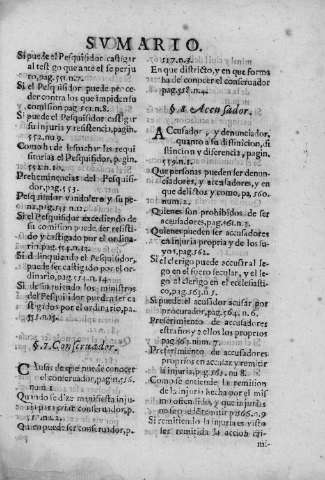 SVMARIO.
Si puede el Pesquisidor castigar
al testigo que ante el se perju
ro, pag. 551. n. 7.
Si el Pesquisidor puede proce
der contra los que impiden su
comission, pag. 551. n. 8.
Si puede el Pesquisidor castigar
su injuria y resistencia, pagin.
552. nu. 9.
Como ha de despachar las requi
sitorias el Pesquisidor, pagin.
Preheminencias del Pesquisi-
dor, pag. 553.
Pesquisidor vandolero y su pe-
na, pag. 553. n.
Si el Pesquisidor excediendo de
su comision puede ser resisti
do y castigado por el ordina-
rio, pag.
Si delinquiendo el Pesquisidor
puede ser castigado por el or
dinario, pag. 551. n. 14.
Si delinquiendo los ministros
del Pesquisidor pueden ser ca
stigados por el ordinario, pa.
§. 7. Conseruador.
CAusas de que puede conocer
el conseruador, pagin. 556.
num. 1.
Quando se dize manifiesta inju-
ria
Quien puede ser conseruador, p.
557. n. 3.
En que districto, y en que forma
ha de conocer el conseruador
pag. 558. n. 4.
§. 8. Accusador.
ACcusador, y denunciador,
quanto a su distinicion, si
stincion y diserencia, pagin.
559. n. 1.
Que personas pueden ser denun-
ciadores, y accusadores, y en
que delictos y como, pa, 560.
num. 2.
Quienes son prohibidos de ser
accusadores, pag. 561. n. 3.
Quienes pueden ser accusadores
en injuria propria y de los su-
yos, pag. 562.
Si el clerigo puede accusar al le-
go en el fuero secular, y el le-
go al clerigo en el ecclesiasti-
co, pag. 563. n. 5.
Si puede el accusador acusar por
procurador, pag. 564. n. 6.
Preferimiento de accusadores
estraños y a ellos los proprios
pag. 565. num. 7.
Preferimiento de accusadores
proprios en accusar y remitir
la injuria, pag. 565. nu 8.
Como se entiende la remission
de la injuria hecha por el mis
mo offendido, y que injurias
no se puede remitir p. 566. n. 9
Si remitiendo la injuria es visto
ser remitida la accion cri-
mi-